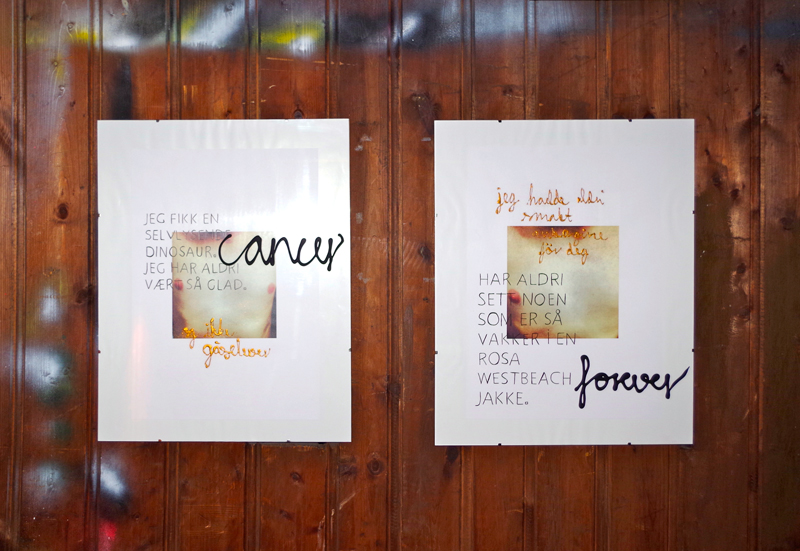 JEG FIKK EN
SELVLYSENDE
DINOSAUR.
JEG HAR ALDRI
VÆRT SÅ GLAD.
cancer
gåselever
jeg hadde aldri
smakt
før deg
HAR ALDRI
SETT NOEN
SOM ER SÅ
VAKKER I EN
ROSA
WESTBEACH
JAKKE.
forever